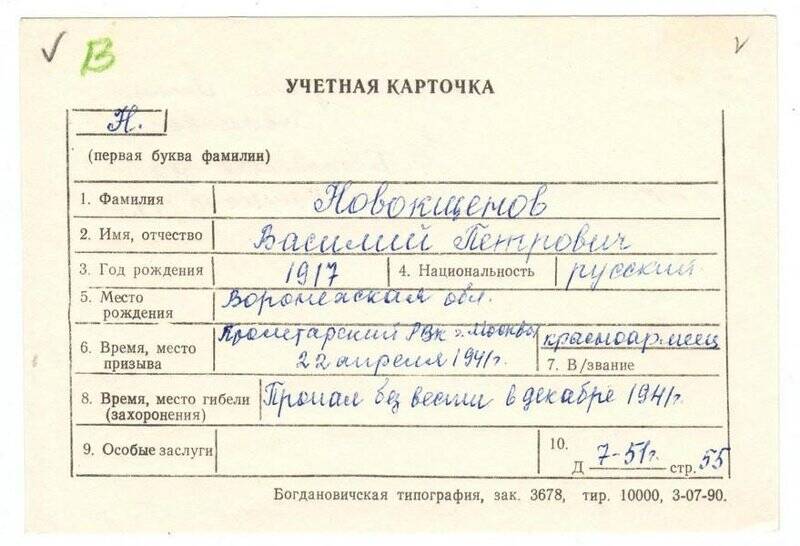 √ В √
УЧЕТНАЯ КАРТОЧКА
Н.
(первая буква фамилии)
1. Фамилия Новокщенов
2. Имя, отчество Василий Петрович
3. Год рождения 1917 4. Национальность русский
5. Место рождения Воронежская обл.
6. Время, место призыва Пролетарский РВК г. Москвы 22 апреля 1941г.
красноармеец
7. В/звание
8. Время, место гибели (захоронения) Пропал без вести в декабре 1941г.
9. Особые заслуги
10. Д 7-51г. стр. 55
Богдановичская типография, зак. 3678, тир. 10000, 3-07-90.